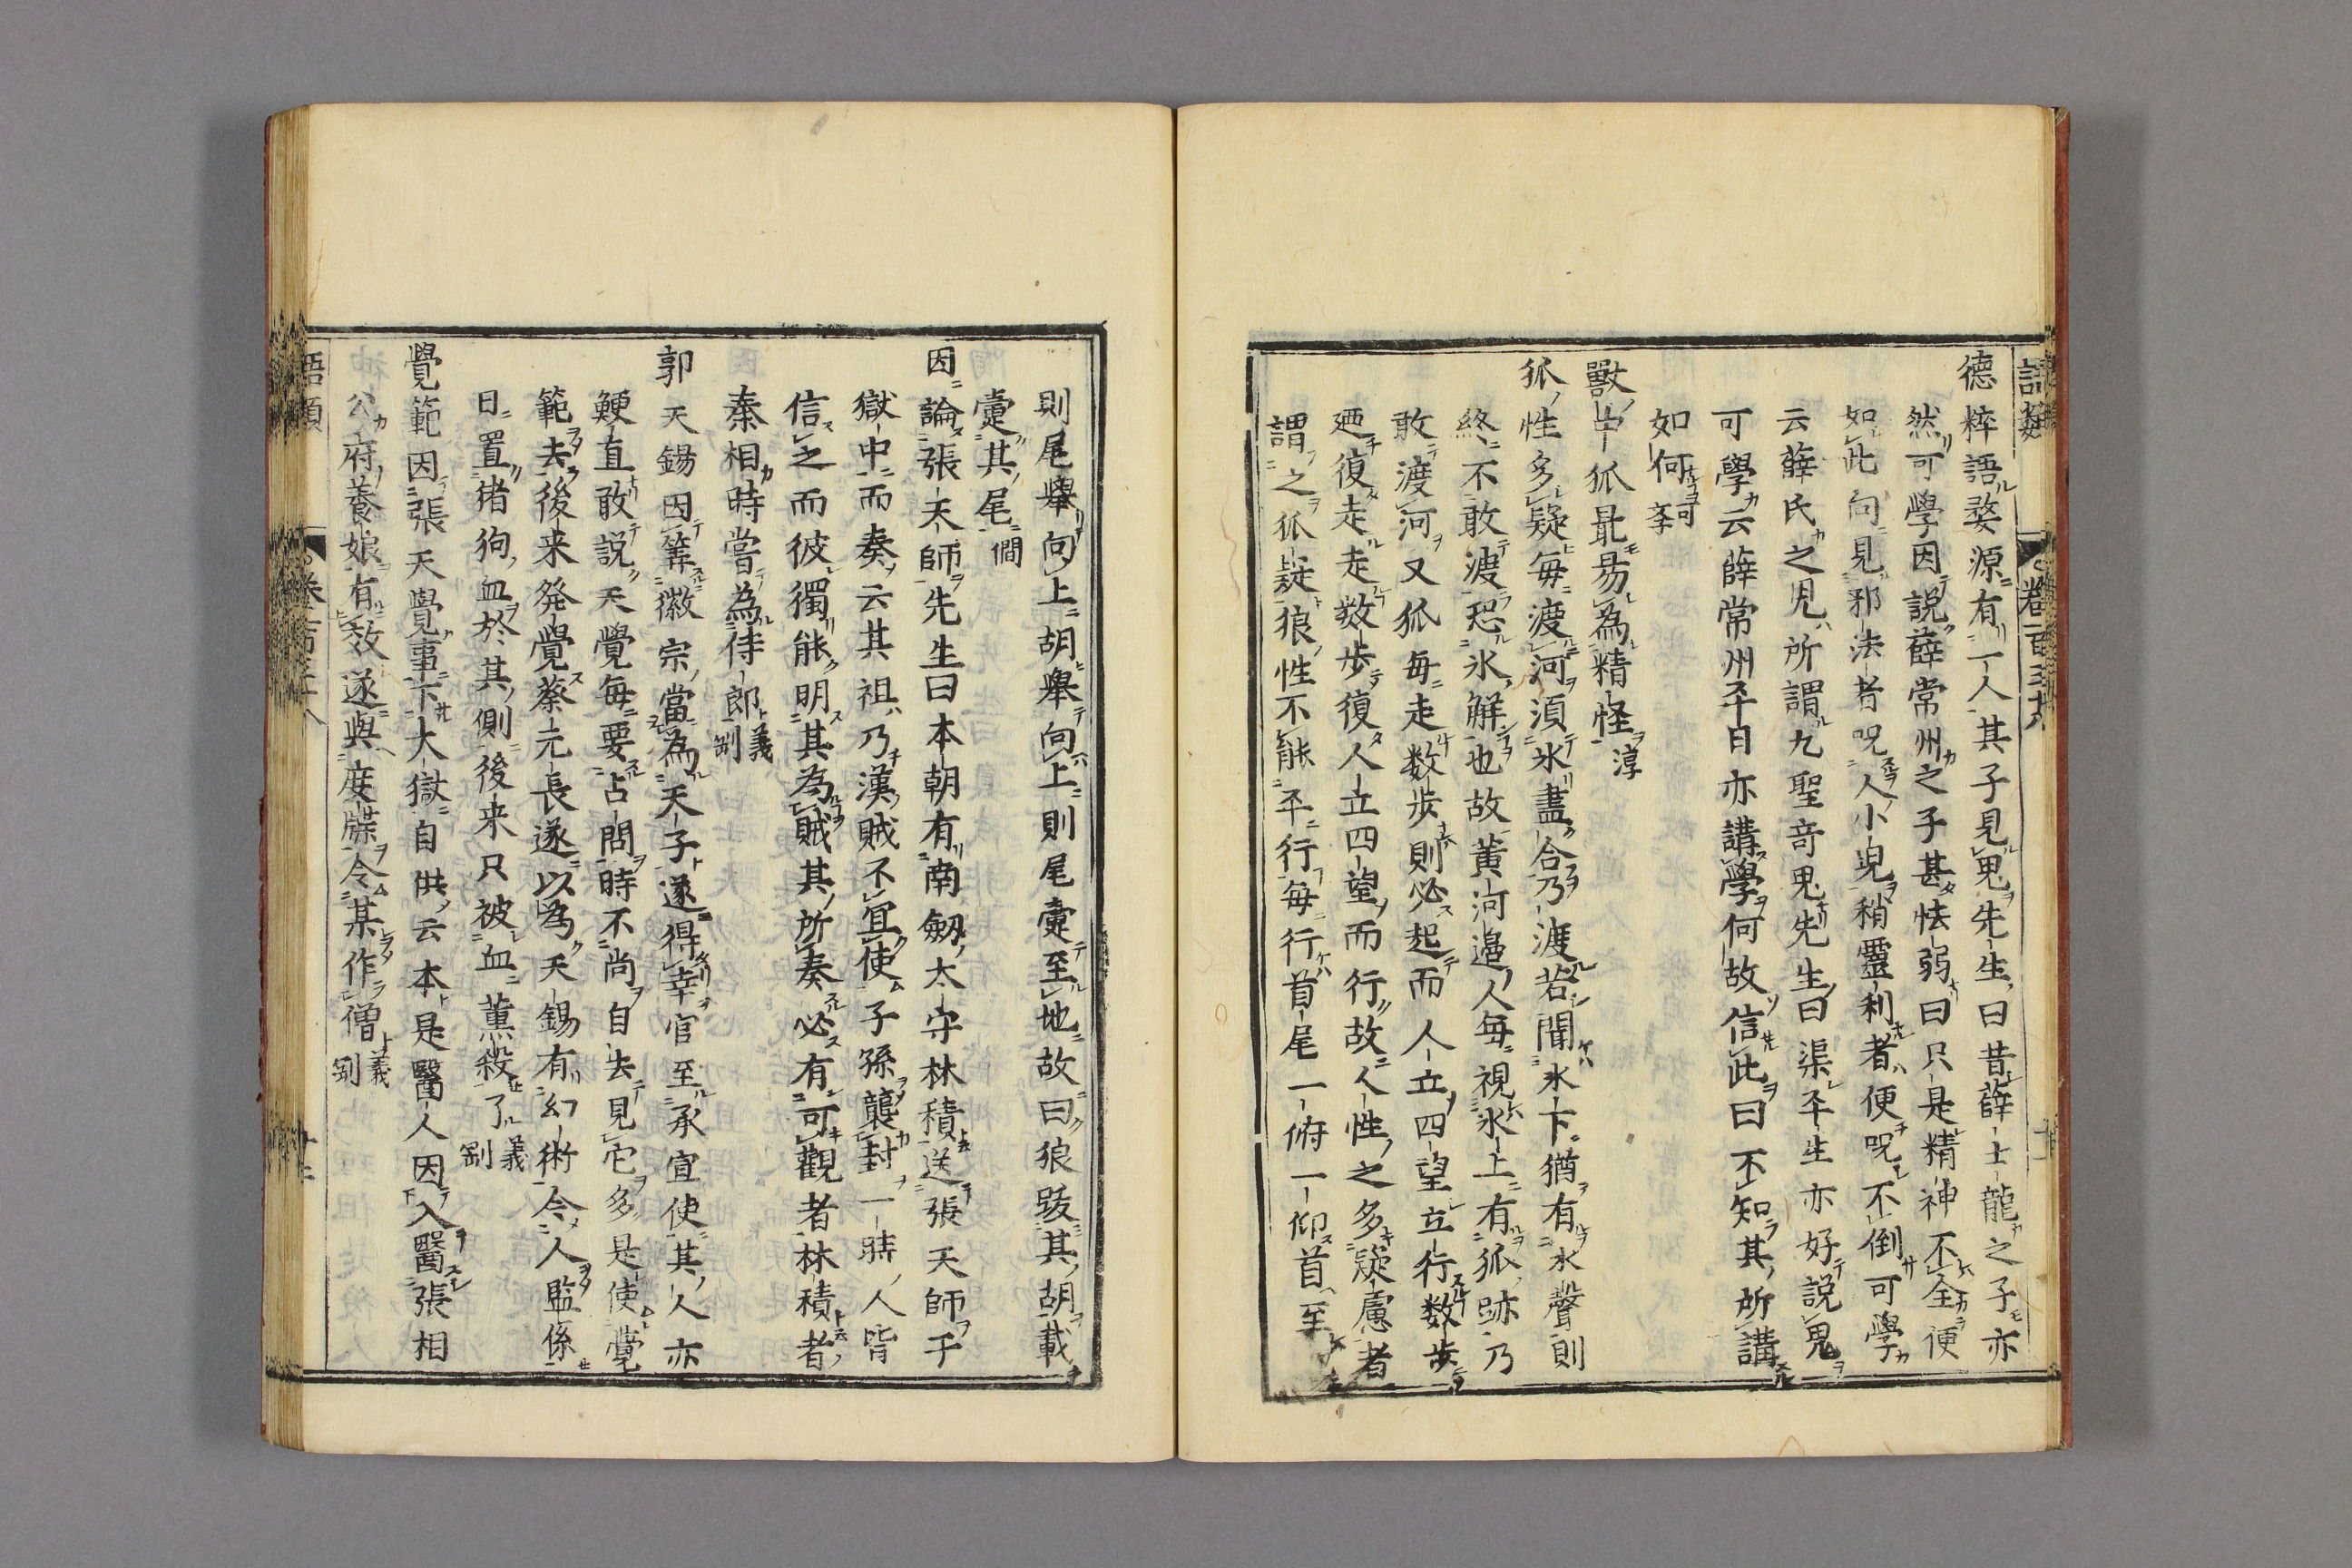 語類
卷一百三十八
德粹語婺源有一人其子見鬼先生曰昔薛士龍之子亦
然可學因説薛常州之子甚怯弱曰只是精神不全便
如此向見邪法者呪人小兒稍靈利者便呪不倒可學
云薛氏之鬼所謂九聖竒鬼先生曰渠平生亦好説鬼
可學云薛常州平日亦講學何故信此曰不知其所講
如何可學
獸中狐最易為精怪淳
狐性多疑毎渡河須氷盡合乃渡若聞氷下猶有水聲則
終不敢渡恐氷解也故黃河邉人毎視氷上有狐跡乃
敢渡河又狐毎走数歩則必起而人立四望立行数歩
廼復走走数歩復人立四望而行故人性之多疑慮者
謂之狐疑狼性不能平行毎行首尾一俯一仰首至
則尾舉向上胡舉向上則尾疐至地故曰狼跋其胡載
疐其尾僩
因論張天師先生曰本朝有南劔太守林積送張天師于
獄中而奏云其祖乃漢賊不宜使子孫襲封一時人皆
信之而彼獨能明其為賊其所奏必有可觀者林積者
秦相時嘗為侍郎義剛
郭天錫因筭徽宗當為天子遂得幸官至承宣使其人亦
鯁直敢説天覺毎要占問時不尚自去見它多是使覺
範去後来発覺蔡元長遂以為天錫有幻術令人監係
日置猪狗血於其側後来只被血薫殺了義剛
覺範因張天覺事下大獄自供云本是醫人因入醫張相
公府養娘有效遂與度牒令某作僧義剛
語類
十二